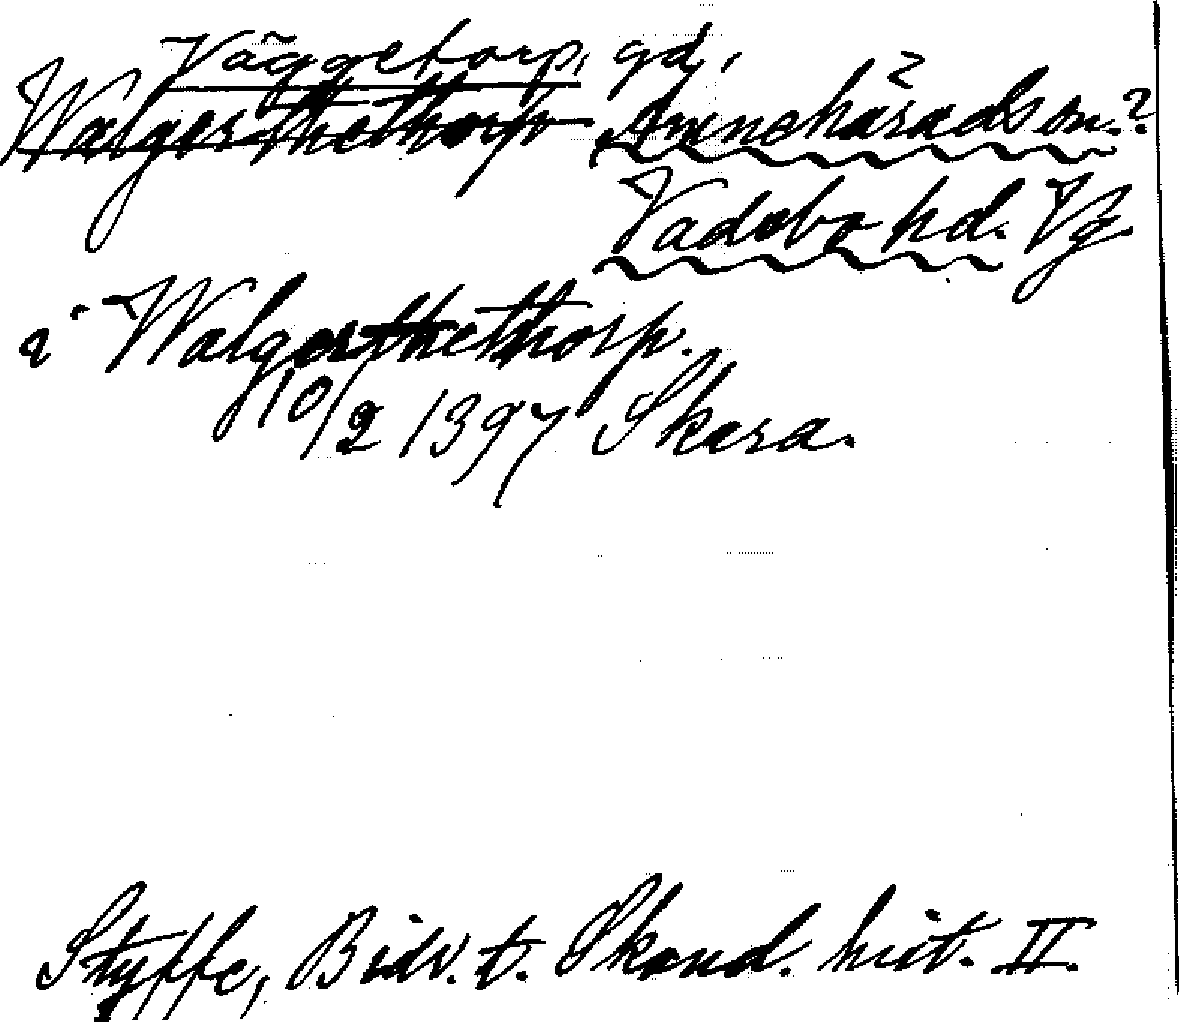 Väggetorp, gd,
Walgerthethorp Amnehärads sn.?
?
Vadsbo hd. Vg.
i Walgerthethorp.
10/2 1397 Skara.
Styffe, Bidr. t. Skand. hist. II.